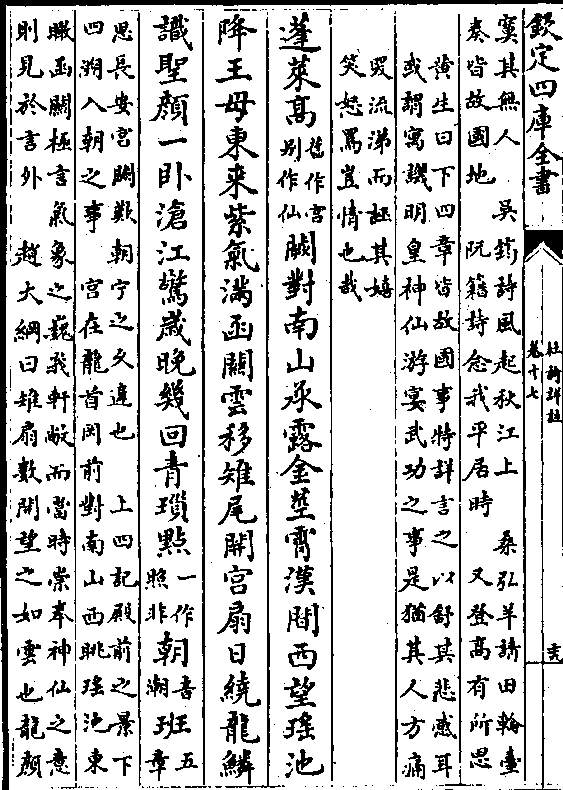 欽定四庫全書
杜詩詳註
卷十七
寞其無人 吳筠詩風起秋江上 桑弘羊請田輪臺
秦皆故國地 阮籍詩念我平居時 又登高有所思
黃生曰下四章皆故國事特詳言之以舒其悲感耳
或謂寓譏明皇神仙游宴武功之事是猶其人方痛
哭流涕而誣其嬉
笑怒罵豈情也哉
蓬萊高舊作宮別作仙闕對南山承露金莖霄漢間西望瑤池
降王母東来紫氣滿函關雲移雉尾開宮扇日繞龍鱗
識聖顏一卧滄江驚歲晚幾回青瑣點一作照非朝音潮班五章
思長安宮闕歎朝宁之久違也 上四記殿前之景下
四溯入朝之事 宮在龍首岡前對南山西眺瑤池東
瞰函關極言氣象之巍峩軒敞而當時崇奉神仙之意
則見於言外 趙大綱曰雉扇數開望之如雲也龍顏